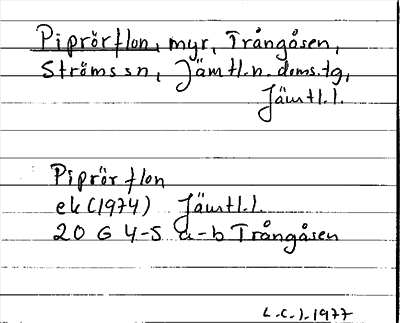 Piprörflon, myr, Trångåsen,
Ströms sn, Jämtl.n. doms.tg,
Jämtl.l.
Piprör flon
ek (1974) Jämtl.l.
20 G 4-5 a-b Trångåsen
L.C.J. 1977